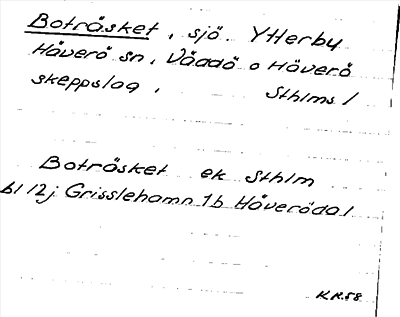 Boträsket, sjö. Ytterby
Häverö sn, Väddö o Häverö
skeppslag, Sthlms l
Boträsket ek Sthlm
bl 12j Grisslehamn 1b Häverödal
K.R.58